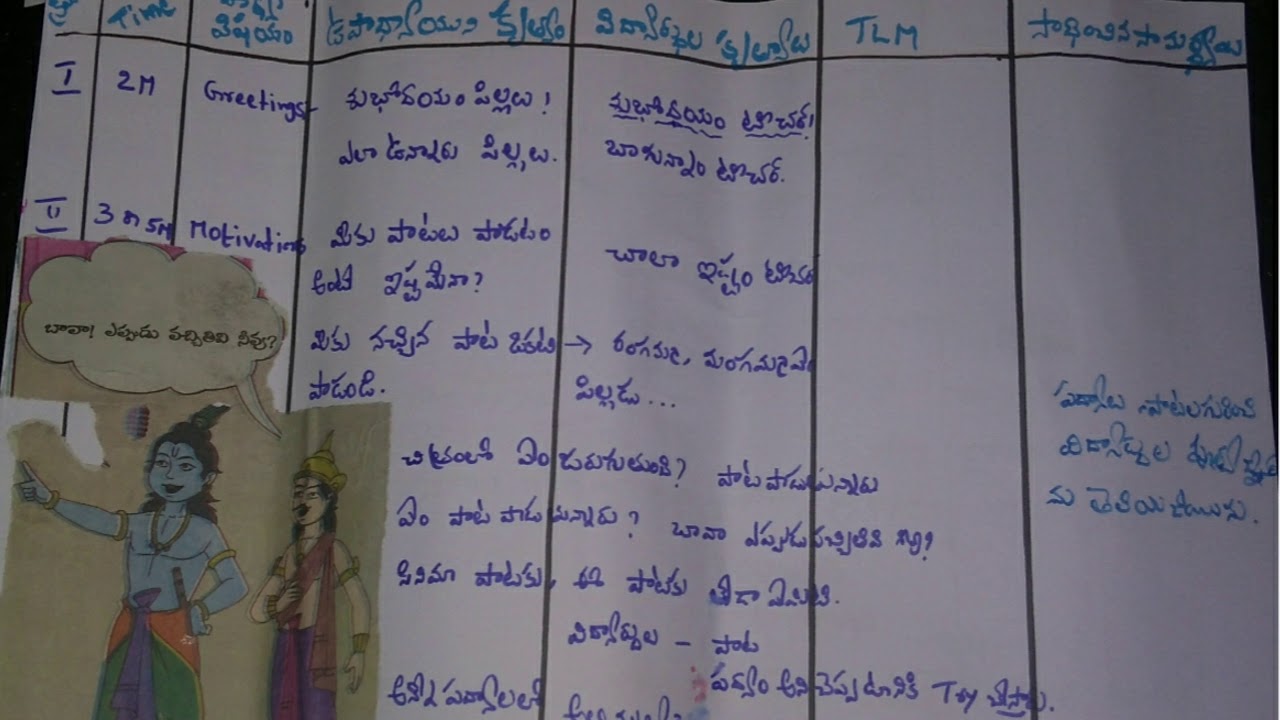 Time
విషయం
ఉపాధ్యాయుని కృత్యం
విద్యార్థుల కృత్యాలు
TLM
సాధించిన సామర్థ్యాలు
I 2M Greetings
శుభోదయం పిల్లలు !
ఎలా ఉన్నారు పిల్లలు.
శుభోదయం టీచర్!
బాగున్నాం టీచర్.
II 3 or 5M Motivation
మీకు పాటలు పాడటం
అంటే ఇష్టమేనా?
చాలా ఇష్టం టీచర్
మీకు నచ్చిన పాట ఒకటి → రంగమ్మ, మంగమ్మ ఏం
పాడండి. పిల్లడు ...
బావా! ఎప్పుడు వచ్చితివి నీవు?
చిత్రంలో ఏం జరుగుతుంది? పాట పాడుతున్నారు
ఏం పాట పాడుతున్నారు ? బావా ఎప్పుడు వచ్చితివి నీవు?
సినిమా పాటకు, ఈ పాటకు తేడా ఏమిటి.
విద్యార్థులు – పాట
పద్యం అని చెప్పటానికి Try చేస్తారు.
పద్యాలు, పాటల గురించి
విద్యార్థుల
ను తెలియజేయుట.